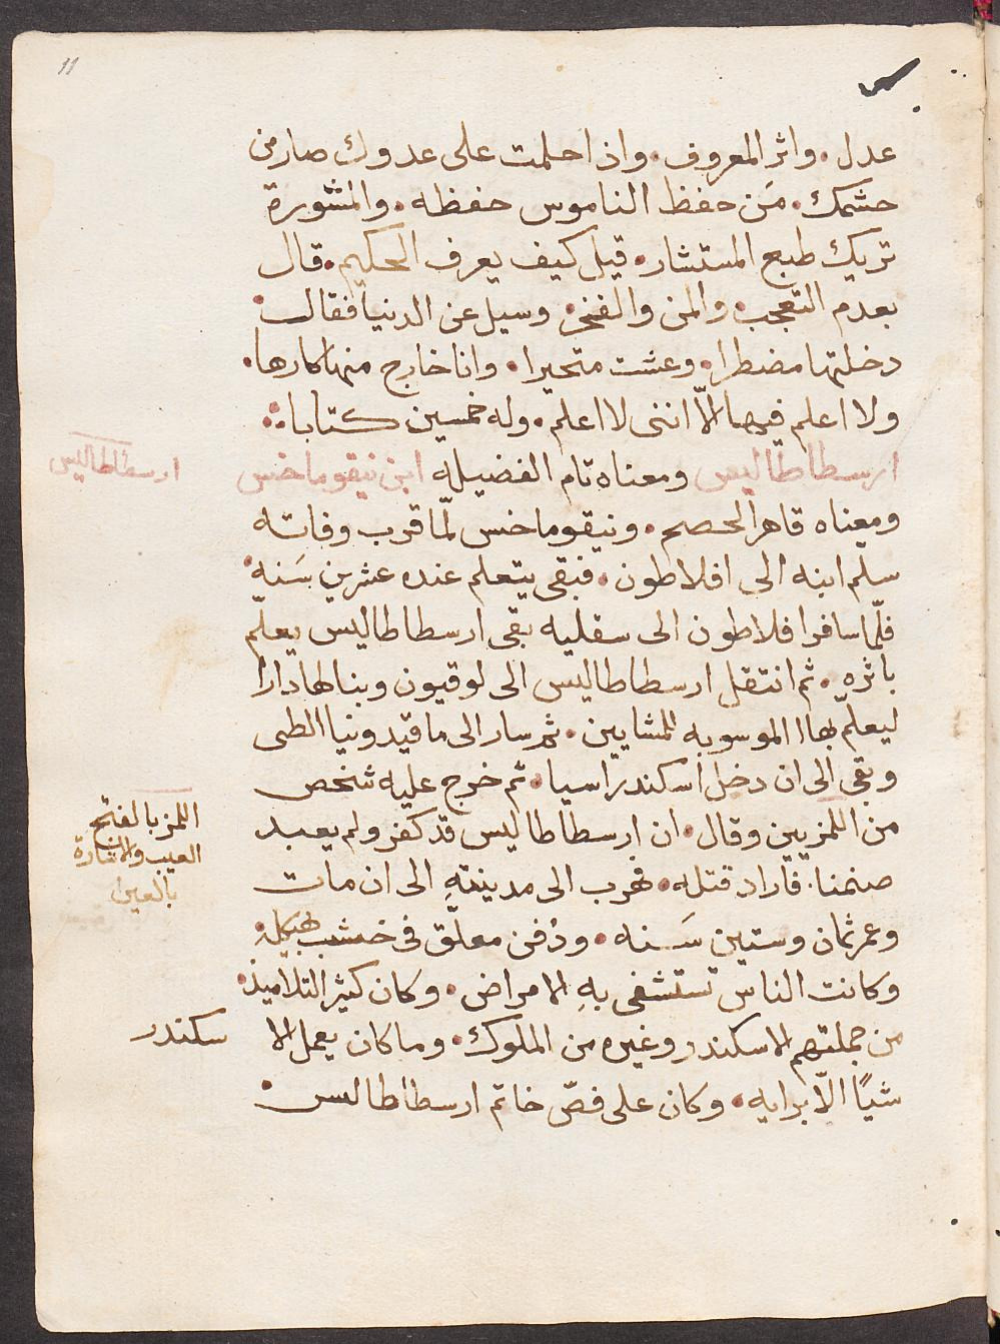 11
عدل . واثر المعروف . واذا حلمت على عدوك صار من
حشمك . مَن حفظ الناموس حفظه . والمشورة
تريك طبع المستشار . قيل كيف يعرف الحكيم . قال
بعدم التعجب والمن والفخر . وسيل عن الدنيا فقال .
دخلتها مضطرا . وعشت متحيرا . وانا خارج منها كارها .
ولا اعلم فيها الّا اننى لا اعلم . وله خمسين كتابا .
ارسطاطاليس ومعناه تام الفضيله ابن نيقوماخس
ارسطاطاليس
ومعناه قاهر الخصم . ونيقوماخس لمّا قرب وفاته
سلّم ابنه الى افلاطون . فبقى يتعلم عنده عشرين سَنه .
فلّما سافر افلاطون الى سقليه بقى ارسطاطاليس يعلّم
باثره . ثم انتقل ارسطاطاليس الى لوقيون وبنا لها دارا
ليعلّم بها الموسوبه للمشايين . ثم سار الى ماقيدونيا
وبقى الى ان دخل اسكندر اسيا . ثم خرج عليه شخص
من اللمزيين وقال . ان ارسطاطاليس قد كفر ولم يعبد
اللمز بالفتح
العيب والاشارة
بالعين
صنمنا . فاراد قتله . فهرب الى مدينتهِ الى ان مات
وعمر ثمان وستين سَنه . ودُفن معلّق فى خشب بهيكله .
وكانت الناس تستشفى بهِ الامراض . وكان كثير التلاميذ .
من جملتهم الاسكندر وغيره من الملوك . وما كان يعمل الا
سكندر
شيًا الّا برايه . وكان على فصّ خاتم ارسطاطاليس .